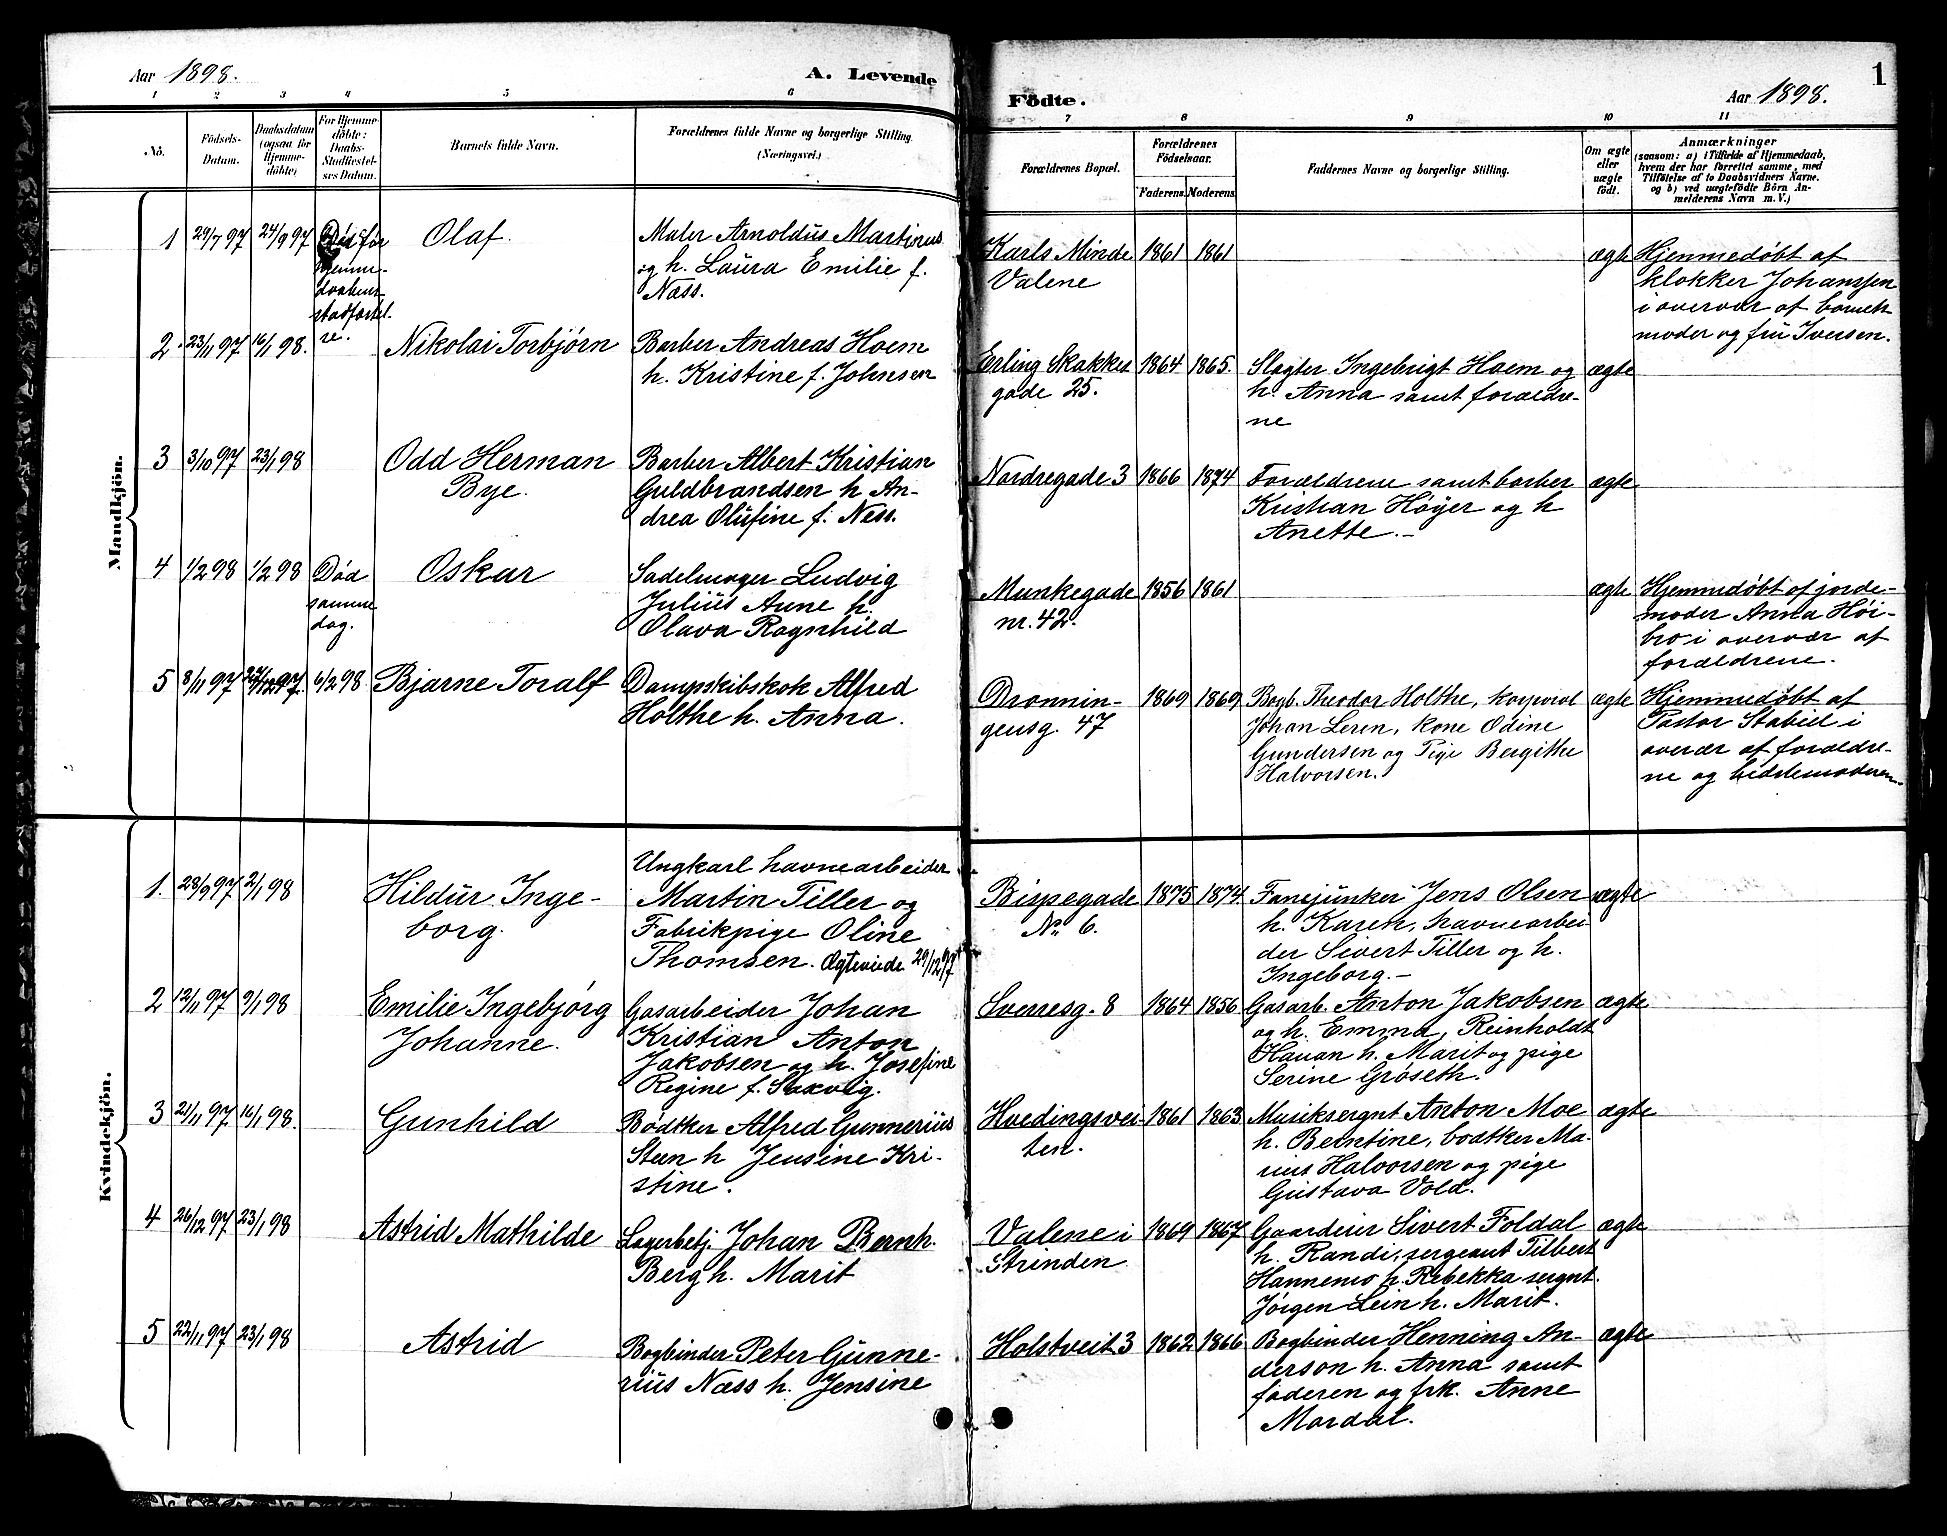 Aar 1898.
A. Levende
Födte.
Aar 1898.
1
1 2 3 4 5 6 7 8 9 10 11
No.
Födsels-Datum.
Daabsdatum (ogsaa for Hjemmedöbte)
For Hjemmedöbte: Daabs-Stadfæstelses Datum.
Barnets fulde Navn.
Forældrenes fulde Navne og borgerlige Stilling.
(Næringsvei.)
Forældrenes Bopæl.
Forældrenes Födselsaar.
Faderens.
Moderens.
Faddernes Navne og borgerlige Stilling.
Om ægte eller uægte födt.
Anmærkninger
(saasom: a) i Tilfælde af Hjemmedaab, hvem der har forrettet samme, med Tilföielse af to Daabsvidners Navne. og b) ved uægtefödte Börn Anmelderens Navn m. V.)
Mandkjön.
1 29/7 97 24/9 97 Død før hjemmedaabens stadfæstelse.
Olaf.
Maler Arnoldus Martinus
og h. Laura Emilie f.
Næss.
Karls Minde
Valene
1861 1861
ægte
Hjemmedøbt af
klokker Johanssen
i overvær af barnets
moder og fru Iversen.
2 23/11 97 16/1 98.
Nikolai Torbjørn
Barber Andreas Hoem
h. Kristine f. Johnsen
Erling Skakkes
gade 25.
1864 1865.
Slagter Ingebrigt Hoem og
h. Anna samt forældre-
ne
ægte
3 3/10 97 23/1 98
Odd Herman
Bye.
Barber Albert Kristian
Guldbrandsen h. An-
drea Olufine f. Næss.
Nordregade 3
1866 1874
Forældrene samt barber
Kristian Høyer og h
Anette.-
ægte
4 1/2 98 1/2 98 Død
samme
dag.
Oskar
Sadelmager Ludvig
Julius Aune h.
Olava Ragnhild
Munkegade
nr. 42.
1856 1861
ægte
Hjemmedøbt af jorde-
moder Anna Høi-
bro i overvær af
forældrene.
5 8/11 97 27/12 97. 6/2 98
Bjarne Toralf
Dampskibskok Alfred
Holthe h. Anna.
Dronnin-
gensg. 47
1869 1869
Bogb. Theodor Holthe, korporal
Johan Leren, kone Odine
Gundersen og Pige Bergithe
Halvorsen.
ægte
Hjemmedøbt af
Pastor Stabel i
overvær af forældre-
ne og bedstemoderen.
Kvindekjön.
1. 28/9 97 2/1 98
Hildur Inge-
borg.
Ungkarl havnearbeider
Martin Tiller og
Fabrikpige Oline
Thomsen. Ægteviede 29/12 97
Bispegade
No 6.
1875 1874
Fanejunker Jens Olsen
h. Karen, havnearbei-
der Sivert Tiller og h.
Ingeborg.-
uægte
2 12/11 97 9/1 98
Emilie Ingebjørg
Johanne.
Gasarbeider Johan
Kristian Anton
Jakobsen og h. Josefine
Regine f. Saxvig.
Sverresg. 8
1864 1856
Gasarb. Anton Jakobsen
og h. Emma, Reinholdt
Hauan h. Marit og pige
Serine Grøseth.
ægte
3 21/11 97 16/1 98.
Gunhild
Bødtker Alfred Gunnerius
Steen h Jensine Kri-
stine.
Hvedingsvei-
ten.
1861 1863
Musiksergnt Anton Moe
h. Berntine, bødtker Ma-
rius Halvorsen og pige
Gustava Vold.
ægte
4 26/12 97 23/1 98
Astrid Mathilde
Lagerbetj. Johan Bernh.
Berg h. Marit
Valene i
Strinden
1869 1867
Gaardeier Sivert Foldal
h. Randi, sergeant Tilbert
Hannemo h. Rebekka sergnt.
Jörgen Lein h. Marit.
ægte
5 22/11 97 23/1 98
Astrid
Bogbinder Peter Gunne-
rius Næss h. Jensine
Holstveit 3
1862 1866
Bogbinder Henning An-
derson h. Anna samt
faderen og frk. Anne
Mardal.
ægte